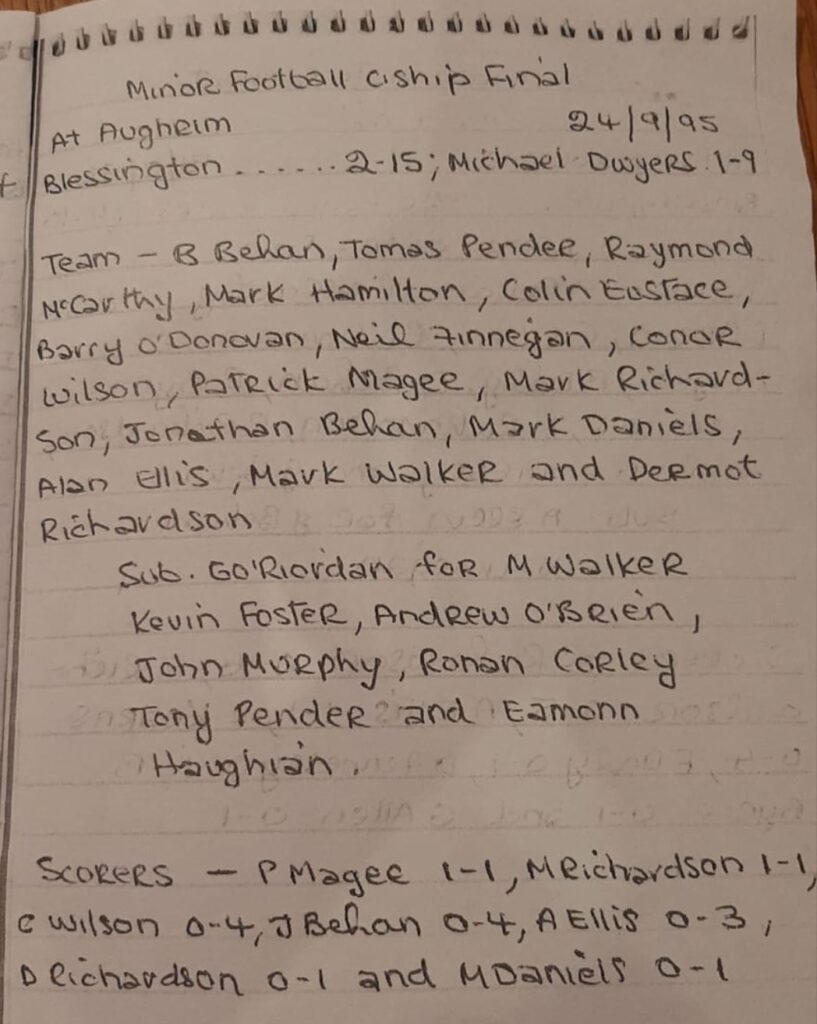 Minor Football C'ship Final
At Augheim 24/9/95
Blessington ...... 2-15; Michael Dwyers 1-9
Team - B Behan, Tomas Pender, Raymond
McCarthy, Mark Hamilton, Colin Eustace,
Barry O'Donovan, Neil Finnegan, Conor
Wilson, Patrick Magee, Mark Richard-
son, Jonathan Behan, Mark Daniels,
Alan Ellis, Mark Walker and Dermot
Richardson
Sub. G O'Riordan for M Walker
Kevin Foster, Andrew O'Brien,
John Murphy, Ronan Corley
Tony Pender and Eamonn
Haughian.
Scorers - P Magee 1-1, M Richardson 1-1,
C Wilson 0-4, J Behan 0-4, A Ellis 0-3,
D Richardson 0-1 and M Daniels 0-1